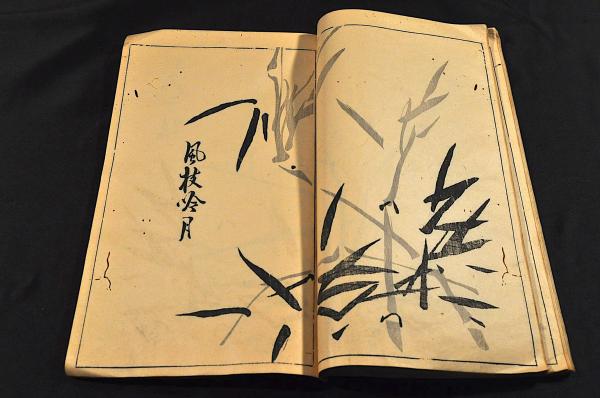 風枝吟月